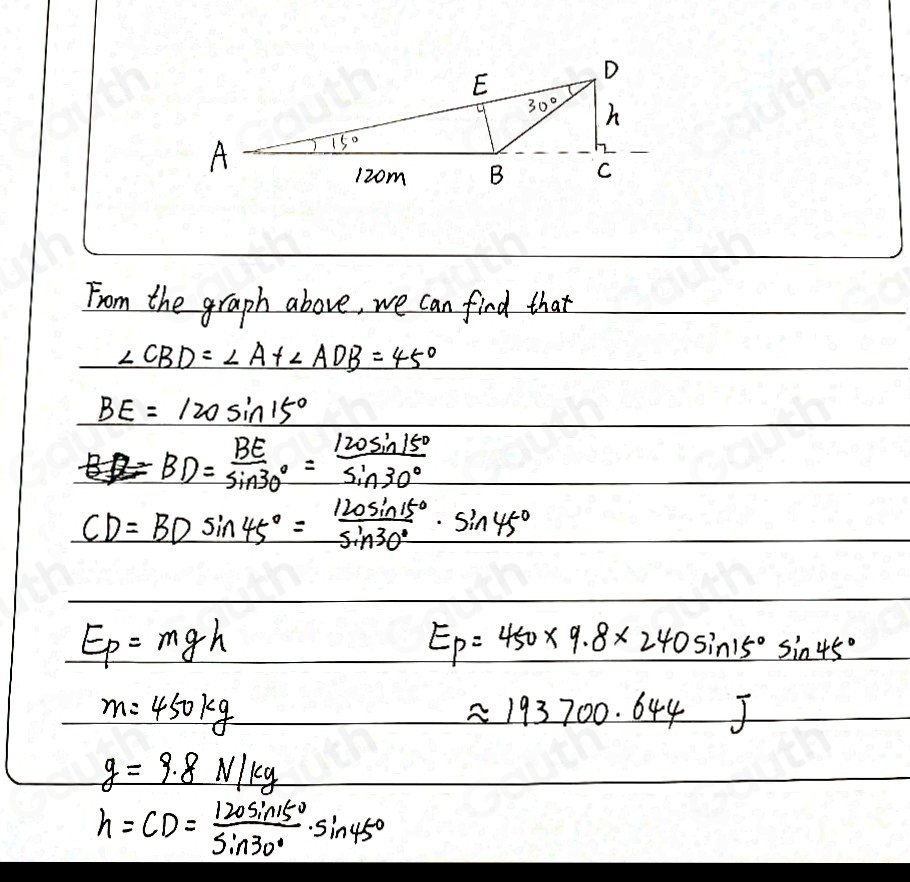 E
D
30°
h
A
15°
120m
B
C
From the graph above, we can find that
∠CBD = ∠A + ∠ADB = 45°
BE = 120 sin 15°
BD = BE/sin30° = 120sin15°/sin30°
CD = BD sin 45° = 120sin15°/sin30° · sin45°
Ep = mgh
Ep = 450 × 9.8 × 240 sin15° sin45°
m = 450kg
≈ 193700.644 J
g = 9.8 N/kg
h = CD = 120sin15°/sin30° · sin45°